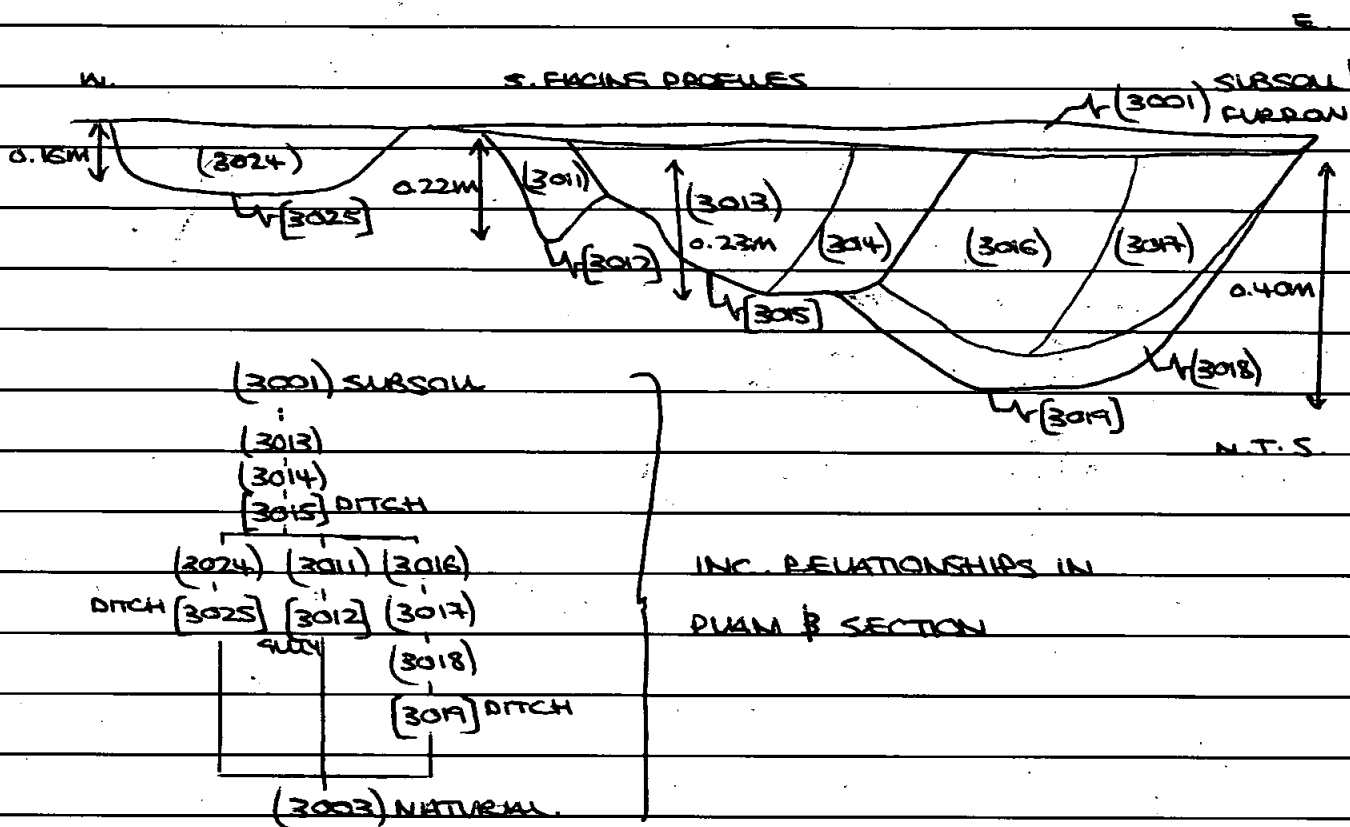 E.
W. S. FACING PROFILES SUBSOIL
(3001) FURROW
0.16m (3024) 0.22m (3011) (3013) 0.23m (3014) (3016) (3017) 0.40m
[3025] [3012] [3015] (3018)
[3019]
N.T.S.
(3001) SUBSOIL
(3013)
(3014)
[3015] DITCH
(3024) (3011) (3016)
DITCH [3025] [3012] (3017)
GULLY
(3018)
[3019] DITCH
(3003) NATURAL.
INC. RELATIONSHIPS IN
PLAN & SECTION